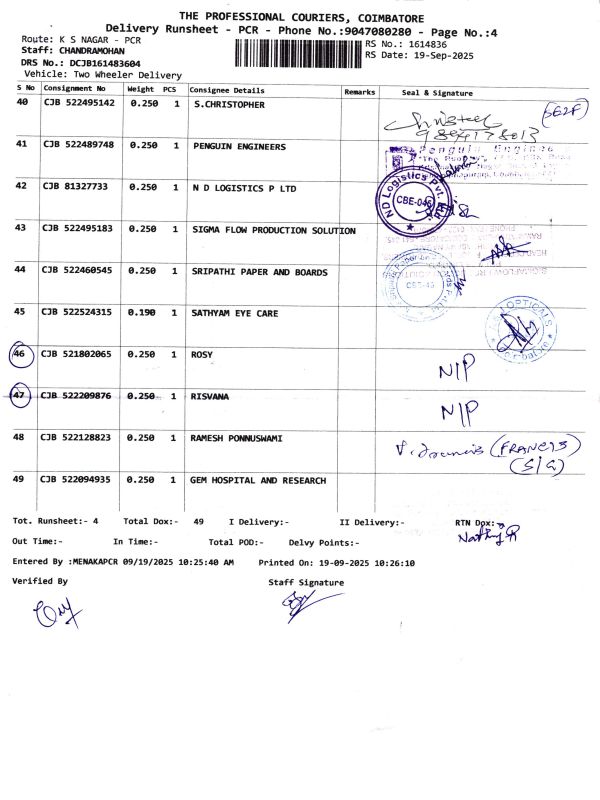 THE PROFESSIONAL COURIERS, COIMBATORE
Delivery Runsheet - PCR - Phone No.:9047080280 - Page No.:4
Route: K S NAGAR - PCR
RS No.: 1614836
Staff: CHANDRAMOHAN
RS Date: 19-Sep-2025
DRS No.: DCJB161483604
Vehicle: Two Wheeler Delivery
S No Consignment No Weight PCS Consignee Details Remarks Seal & Signature
40 CJB 522495142 0.250 1 S.CHRISTOPHER
(SELF)
9894178013
41 CJB 522489748 0.250 1 PENGUIN ENGINEERS
Penguin Enginee
42 CJB 81327733 0.250 1 N D LOGISTICS P LTD
ND Logistics Pvt. Ltd
CBE-045
43 CJB 522495183 0.250 1 SIGMA FLOW PRODUCTION SOLUTION
44 CJB 522460545 0.250 1 SRIPATHI PAPER AND BOARDS
CBE-45
45 CJB 522524315 0.190 1 SATHYAM EYE CARE
OPTICALS
Coimbatore
46 CJB 521802065 0.250 1 ROSY
N/P
47 CJB 522209876 0.250 1 RISVANA
N/P
48 CJB 522128823 0.250 1 RAMESH PONNUSWAMI
(FRANCIS)
(S/G)
49 CJB 522094935 0.250 1 GEM HOSPITAL AND RESEARCH
Tot. Runsheet:- 4 Total Dox:- 49 I Delivery:- II Delivery:- RTN Dox:-
Out Time:- In Time:- Total POD:- Delvy Points:-
Entered By :MENAKAPCR 09/19/2025 10:25:40 AM Printed On: 19-09-2025 10:26:10
Verified By Staff Signature